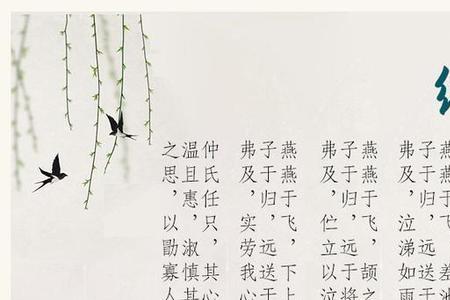 燕燕于飞，差
子于归，远送于
弗及，泣涕如雨
燕燕于飞，颉之
子于归，远于将
弗及，伫立以泣
燕燕于飞，下上
子于归，远送于
弗及，实劳我心
仲氏任只，其心
温且惠，淑慎其
之思，以勖寡人